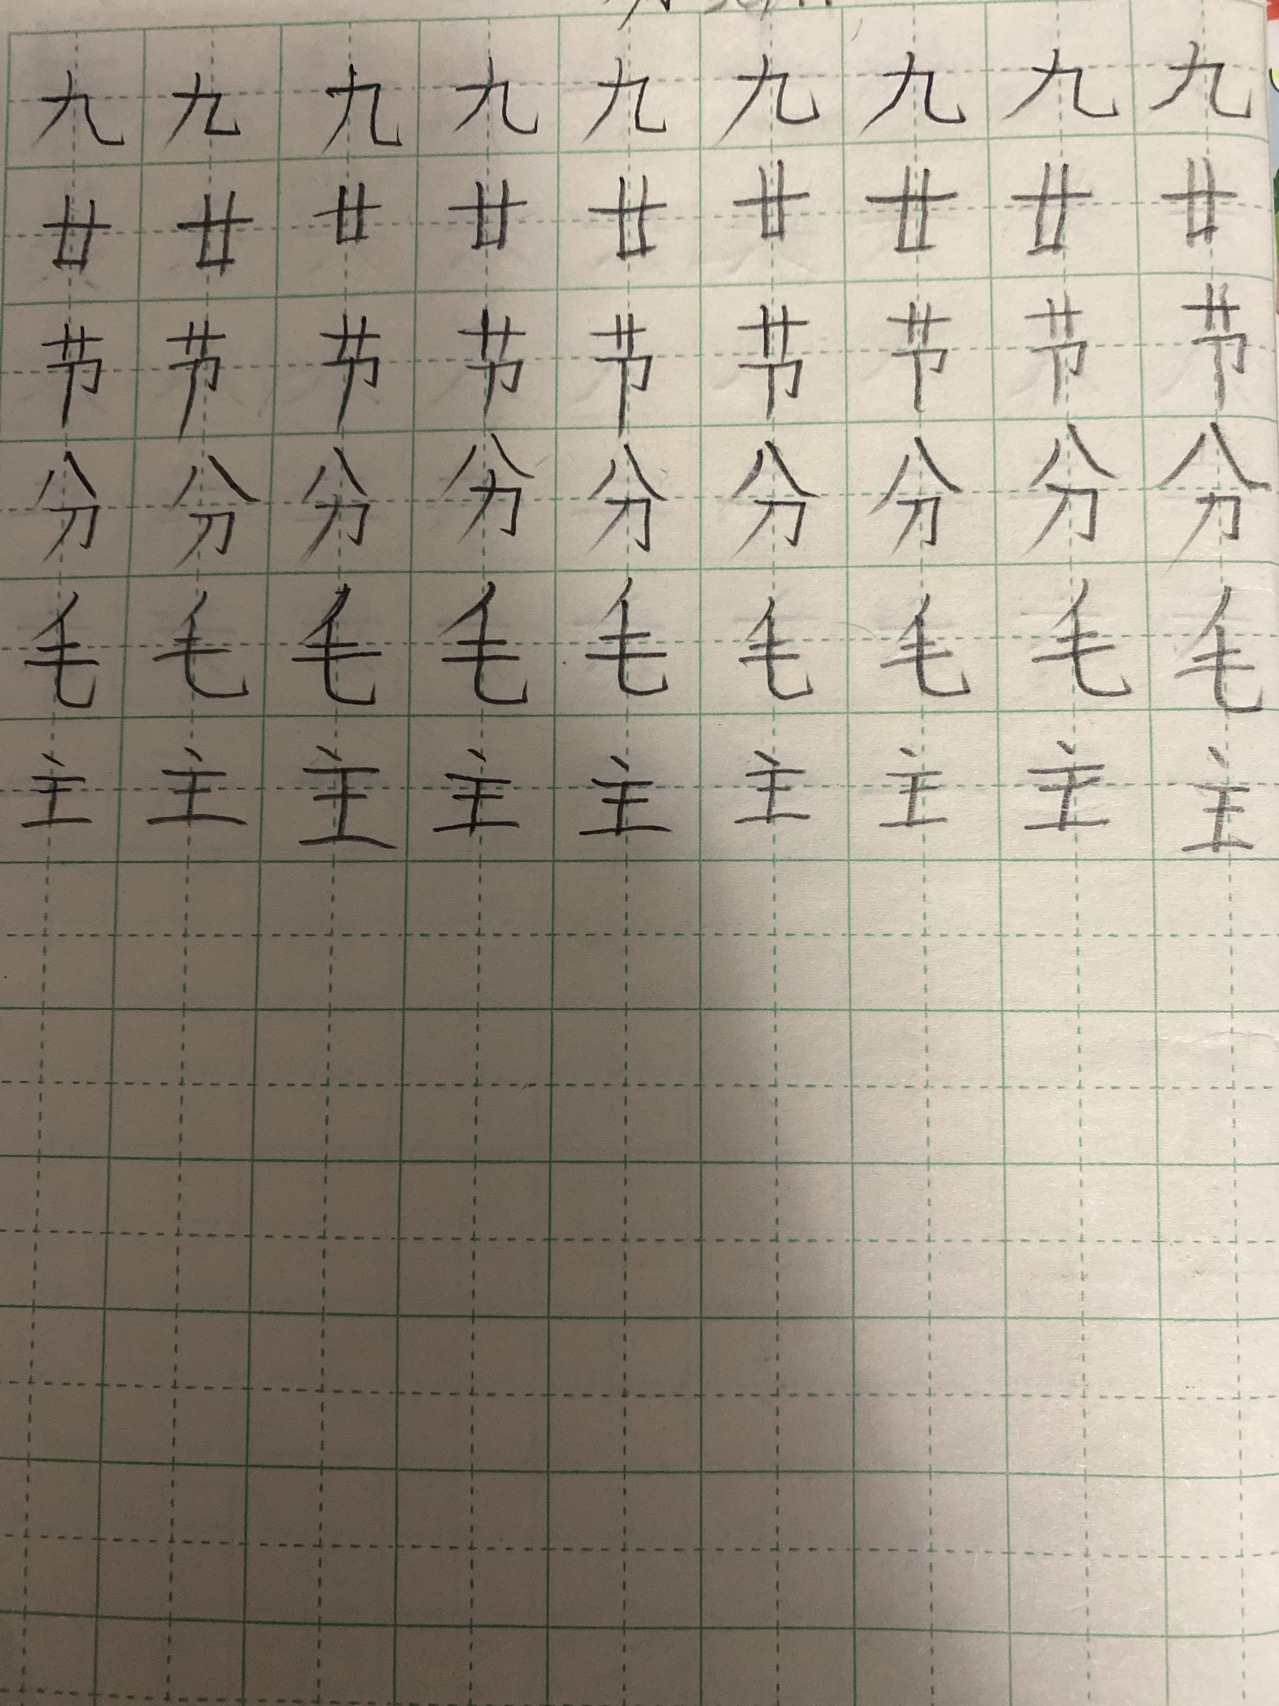 九九九九九九九九九
廿廿廿廿廿廿廿廿廿
节节节节节节节节节
分分分分分分分分分
毛毛毛毛毛毛毛毛毛
主主主主主主主主主